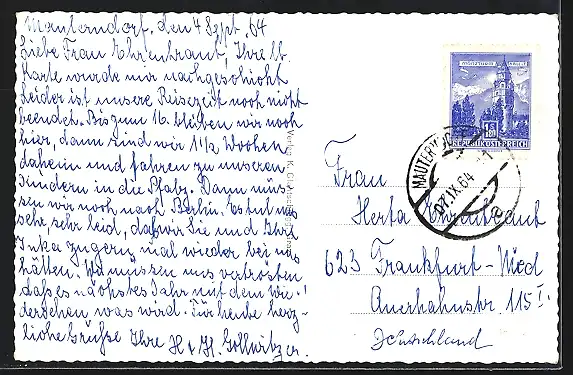 Mauterndorf, den 4. Sept. 64
Liebe Frau Ehrentraut, Ihre lb.
Karte wurde mir nachgeschickt
Leider ist unsere Reisezeit noch nicht
beendet. Bis zum 16. bleiben wir noch
hier, dann sind wir 1 1/2 Wochen
daheim und fahren zu unseren
Kindern in die Pfalz. Dann müs-
sen wir noch nach Berlin. Es tut uns
sehr, sehr leid, daß wir Sie und Ihre
Inka zu gern mal wieder bei uns
hätten. Wir müssen uns vertrösten
daß es nächstes Jahr mit dem Wie-
dersehen was wird. Für heute herz-
liche Grüße Ihre H. + H. Gollwitzer.
REPUBLIK ÖSTERREICH
MAUTERNDORF
07.IX.64
Frau
Herta Ehrentraut
623 Frankfurt-Nied
Auerhahnstr. 115 I.
Deutschland